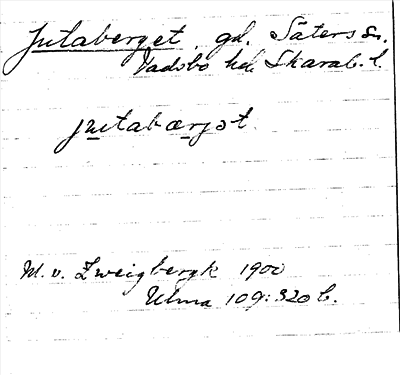 Jutaberget gd. Säters sn.
Vadsbo hd. Skarab. l.
jutabærjət
M. v. Zweigbergk 1900
Ulma 109:320 b.